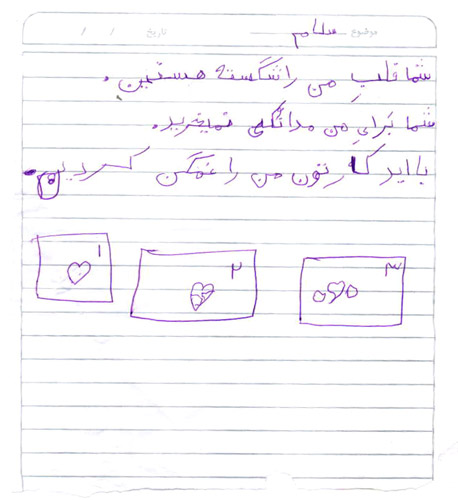 موضوع سلام تاریخ / /
شما قلبِ من را شکسته هستین.
شما بَرایِ من مدادنگهی نمیخرید.
با این کارِتون من را غمگن کردین.
۱
۲
۳